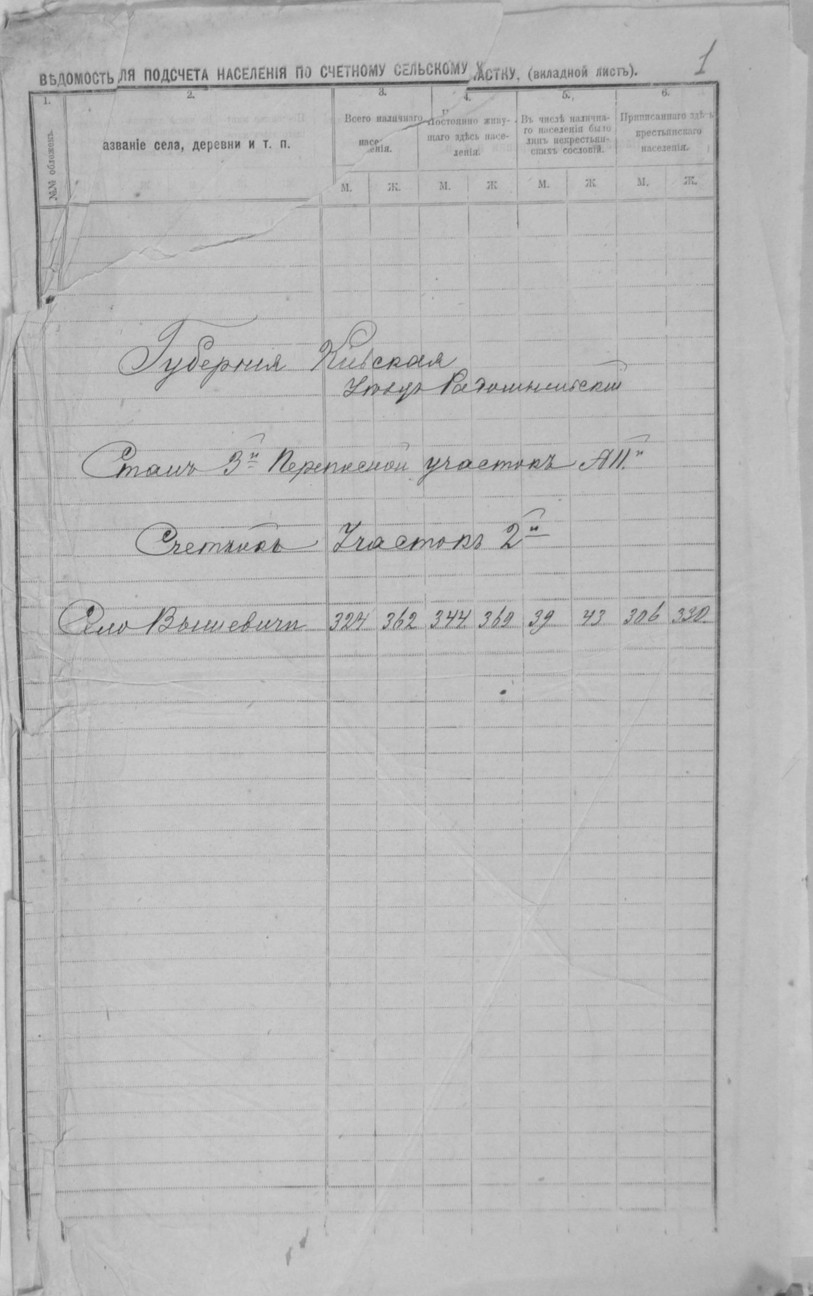 1
ВѢДОМОСТЬ ЛЯ ПОДСЧЕТА НАСЕЛЕНІЯ ПО СЧЕТНОМУ СЕЛЬСКОМУ АСТКУ. (вкладной листъ).
1. 2. 3. 4. 5. 6.
№№ обложекъ
азваніе села, деревни и т. п.
Всего наличнаго
насе
енія.
Постоянно живу-
щаго здѣсь насе-
ленія.
Въ числѣ налична-
го населенія было
лицъ некрестьян-
скихъ сословій.
Приписаннаго здѣсь
крестьянскаго
населенія.
М. Ж. М. Ж М. Ж М. Ж.
Губернія Кіевская
Уѣздъ Радомысльскій
Станъ 3й Переписной участокъ
Счетный Участокъ 2й
Село Вышевичи 324 362 344 369 39 43 306 330.